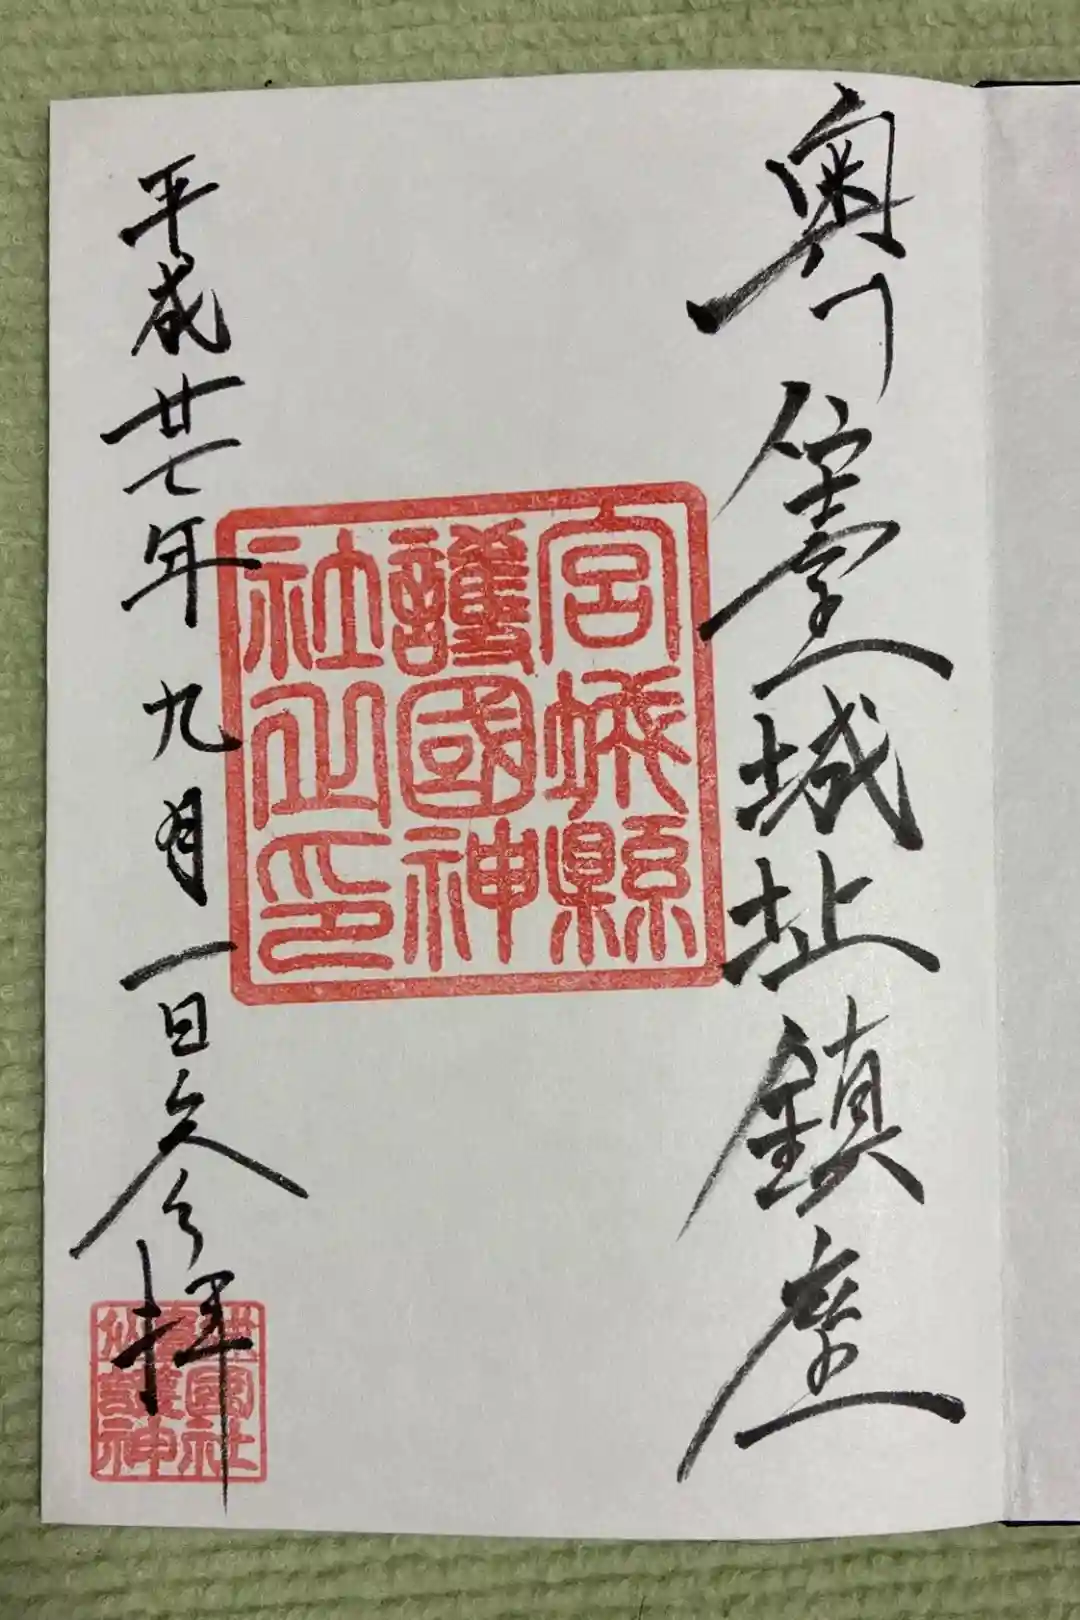 奥州仙臺城址鎮座
宮城縣
護國神
社之印
平成廿七年九月一日参拝